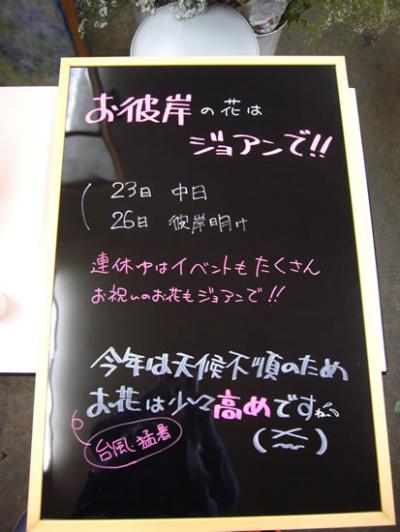 お彼岸の花は
ジョアンで!!
23日 中日
26日 彼岸明け
連休中はイベントもたくさん
お祝いのお花もジョアンで!!
今年は天候不順のため
お花は少々高めですね
台風、猛暑